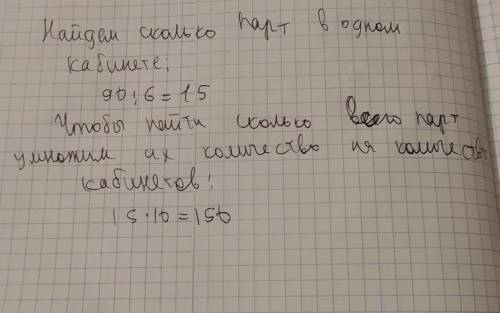 Найдем сколько парт в одном
кабинете:
90:6=15
Чтобы найти сколько всего парт
умножим их количество на количеств
кабинетов:
15·10=150